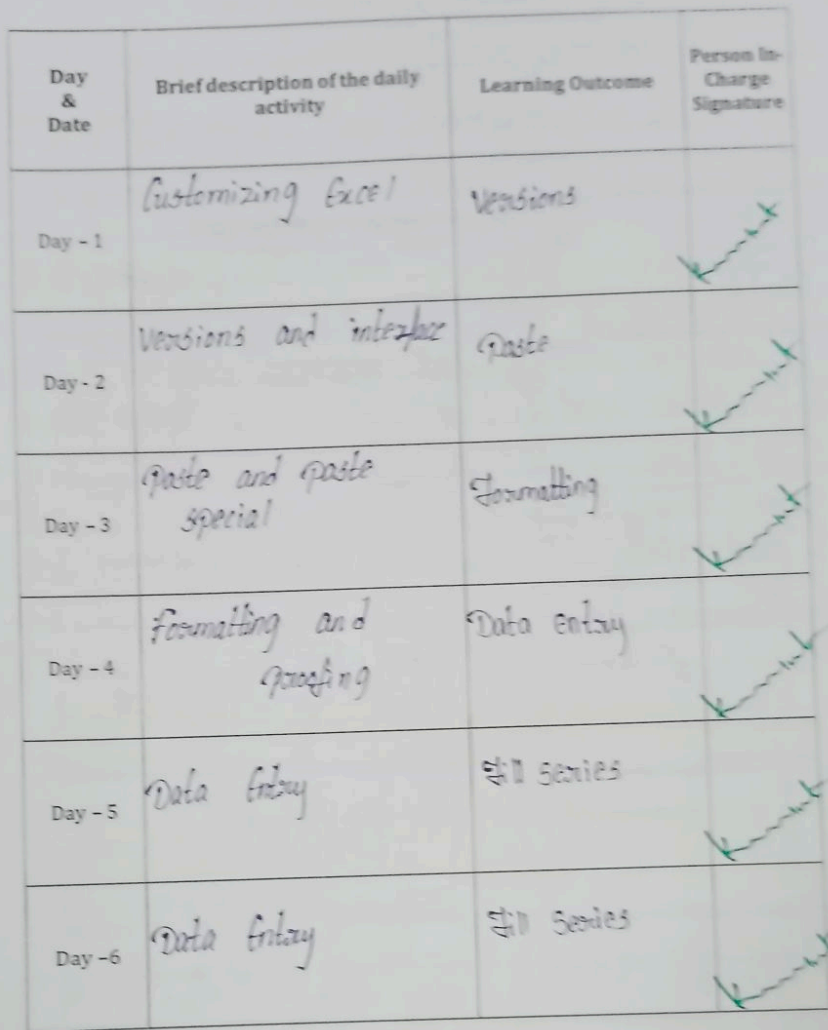 Day
&
Date
Brief description of the daily
activity
Learning Outcome
Person In-
Charge
Signature
Day - 1
Customizing Excel
Versions
Day - 2
Versions and interface
Paste
Day - 3
Paste and paste
special
Formatting
Day - 4
formatting and
proofing
Data entry
Day - 5
Data Entry
Fill series
Day -6
Data Entry
Fill series